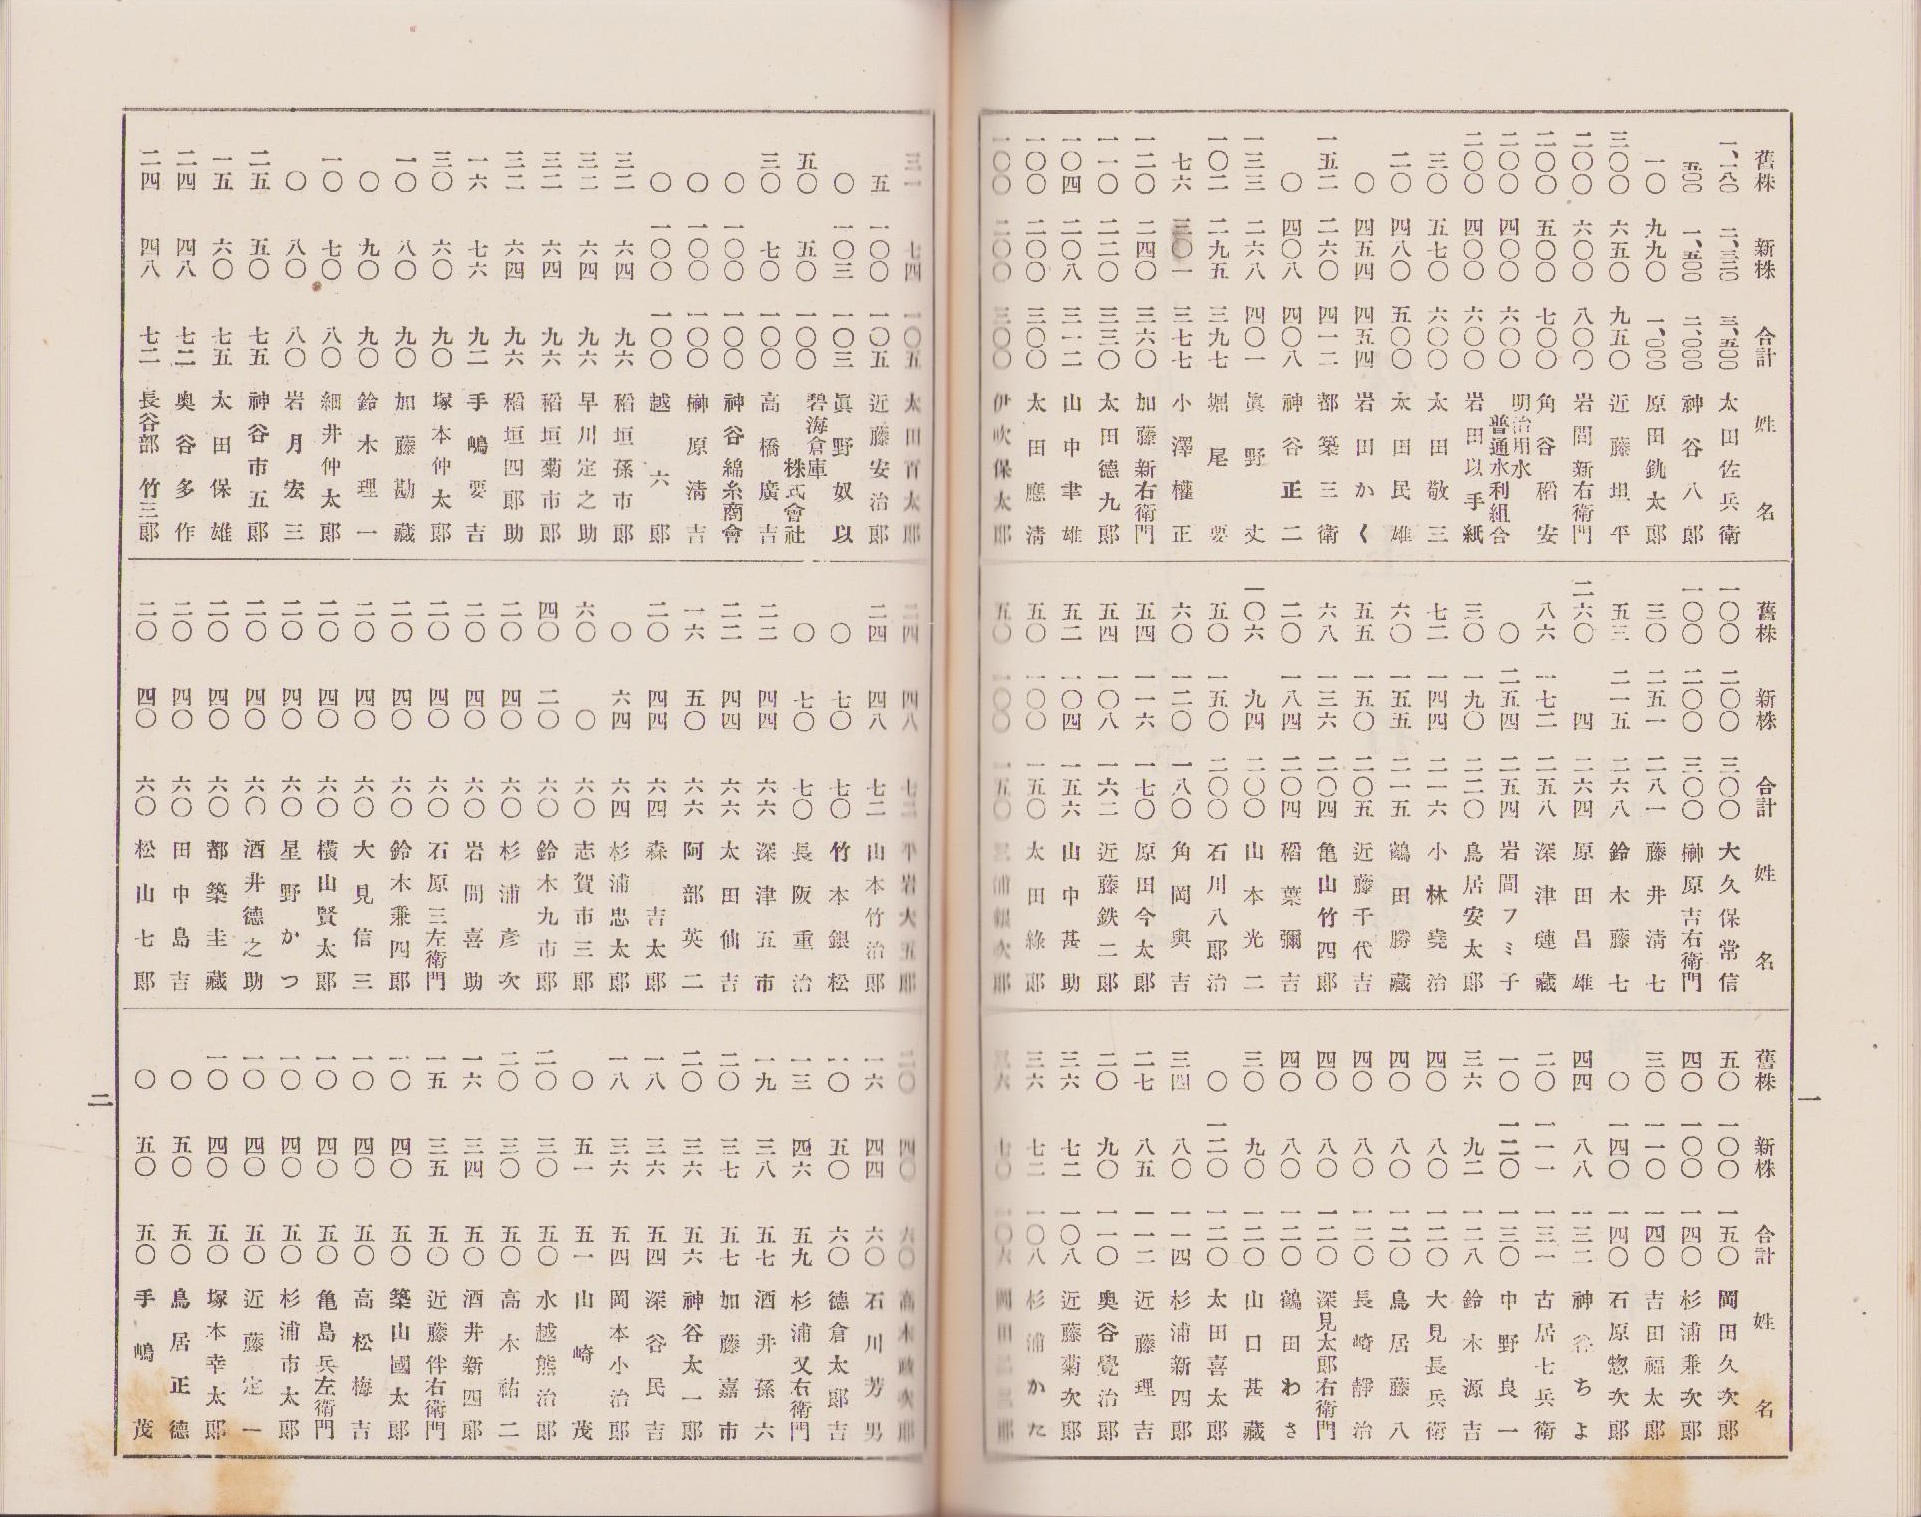 舊株 新株 合計 姓名
一、一八〇 二、三二〇 三、五〇〇 太田佐兵衛
五〇〇 一、五〇〇 二、〇〇〇 神谷八郎
一〇 九九〇 一、〇〇〇 原田銚太郎
三〇〇 六五〇 九五〇 近藤坦平
二〇〇 六〇〇 八〇〇 岩間新右衛門
二〇〇 五〇〇 七〇〇 角谷稻安
二〇〇 四〇〇 六〇〇 明治用水普通水利組合
二〇〇 四〇〇 六〇〇 岩田以手紙
三〇 五七〇 六〇〇 太田敬三
二〇 四八〇 五〇〇 太田民雄
〇 四五四 四五四 岩田かく
一五二 二六〇 四一二 都築三衛
〇 四〇八 四〇八 神谷正二
一三三 二六八 四〇一 眞野丈
一〇二 二九五 三九七 堀尾要
七六 三〇一 三七七 小澤權正
一二〇 二四〇 三六〇 加藤新右衛門
一一〇 二二〇 三三〇 太田德九郎
一〇四 二〇八 三一二 山中聿雄
一〇〇 二〇〇 三〇〇 太田應清
一〇〇 二〇〇 三〇〇 伊吹保太郎
舊株 新株 合計 姓名
一〇〇 二〇〇 三〇〇 大久保常信
一〇〇 二〇〇 三〇〇 榊原吉右衛門
三〇 二五一 二八一 藤井清七
五三 二一五 二六八 鈴木藤七
二六〇 四 二六四 原田昌雄
八六 一七二 二五八 深津璉藏
〇 二五四 二五四 岩間フミ子
三〇 一九〇 二二〇 鳥居安太郎
七二 一四四 二一六 小林堯治
六〇 一五五 二一五 鶴田勝藏
五五 一五〇 二〇五 近藤千代吉
六八 一三六 二〇四 亀山竹四郎
二〇 一八四 二〇四 稻葉彌吉
一〇六 九四 二〇〇 山本光二
五〇 一五〇 二〇〇 石川八郎治
六〇 一二〇 一八〇 角岡與吉
五四 一一六 一七〇 原田今太郎
五四 一〇八 一六二 近藤鉄二郎
五二 一〇四 一五六 山中甚助
五〇 一〇〇 一五〇 太田綠郎
五〇 一〇〇 一五〇 三浦銀次郎
舊株 新株 合計 姓名
五〇 一〇〇 一五〇 岡田久次郎
四〇 一〇〇 一四〇 杉浦兼次郎
三〇 一一〇 一四〇 吉田福太郎
〇 一四〇 一四〇 石原惣次郎
四四 八八 一三二 神谷ちよ
二〇 一一一 一三一 古居七兵衛
一〇 一二〇 一三〇 中野良一
三六 九二 一二八 鈴木源吉
四〇 八〇 一二〇 大見長兵衛
四〇 八〇 一二〇 鳥居藤八
四〇 八〇 一二〇 長崎靜治
四〇 八〇 一二〇 深見太郎右衛門
四〇 八〇 一二〇 鶴田わさ
三〇 九〇 一二〇 山口甚藏
〇 一二〇 一二〇 太田喜太郎
三四 八〇 一一四 杉浦新四郎
二七 八五 一一二 近藤理吉
二〇 九〇 一一〇 奥谷覺治郎
三六 七二 一〇八 近藤菊次郎
三六 七二 一〇八 杉浦かた
三六 七〇 一〇六 岡田三郎
一
三一 七四 一〇五 太田百太郎
五 一〇〇 一〇五 近藤安治郎
〇 一〇三 一〇三 眞野奴以
五〇 五〇 一〇〇 碧海倉庫株式會社
三〇 七〇 一〇〇 高橋廣吉
〇 一〇〇 一〇〇 神谷綿糸商會
〇 一〇〇 一〇〇 榊原清吉
〇 一〇〇 一〇〇 越六郎
三二 六四 九六 稻垣孫市郎
三二 六四 九六 早川定之助
三二 六四 九六 稻垣菊市郎
三二 六四 九六 稻垣四郎助
一六 七六 九二 手嶋要吉
三〇 六〇 九〇 塚本仲太郎
一〇 八〇 九〇 加藤勘藏
〇 九〇 九〇 鈴木理一
一〇 七〇 八〇 細井仲太郎
〇 八〇 八〇 岩月宏三
二五 五〇 七五 神谷市五郎
一五 六〇 七五 太田保雄
二四 四八 七二 奥谷多作
二四 四八 七二 長谷部竹三郎
二四 四八 七二 平岩大五郎
二四 四八 七二 山本竹治郎
〇 七〇 七〇 竹本銀松
〇 七〇 七〇 長阪重治
二二 四四 六六 深津五市
二二 四四 六六 太田仙吉
一六 五〇 六六 阿部英二
二〇 四四 六四 森吉太郎
〇 六四 六四 杉浦忠太郎
六〇 〇 六〇 志賀市三郎
四〇 二〇 六〇 鈴木九市郎
二〇 四〇 六〇 杉浦彥次
二〇 四〇 六〇 岩間喜助
二〇 四〇 六〇 石原三左衛門
二〇 四〇 六〇 鈴木兼四郎
二〇 四〇 六〇 大見信三
二〇 四〇 六〇 横山賢太郎
二〇 四〇 六〇 星野かつ
二〇 四〇 六〇 酒井德之助
二〇 四〇 六〇 都築圭藏
二〇 四〇 六〇 田中島吉
二〇 四〇 六〇 松山七郎
二〇 四〇 六〇 高木政次郎
一六 四四 六〇 石川芳男
一〇 五〇 六〇 德倉太郎吉
一三 四六 五九 杉浦又右衛門
一九 三八 五七 酒井孫六
二〇 三七 五七 加藤嘉市
二〇 三六 五六 神谷太一郎
一八 三六 五四 深谷民吉
一八 三六 五四 岡本小治郎
〇 五一 五一 山崎茂
二〇 三〇 五〇 水越熊治郎
二〇 三〇 五〇 高木祐二
一六 三四 五〇 酒井新四郎
一五 三五 五〇 近藤伴右衛門
一〇 四〇 五〇 築山國太郎
一〇 四〇 五〇 高松梅吉
一〇 四〇 五〇 亀島兵左衛門
一〇 四〇 五〇 杉浦市太郎
一〇 四〇 五〇 近藤定一
一〇 四〇 五〇 塚本幸太郎
〇 五〇 五〇 鳥居正德
〇 五〇 五〇 手嶋茂
二